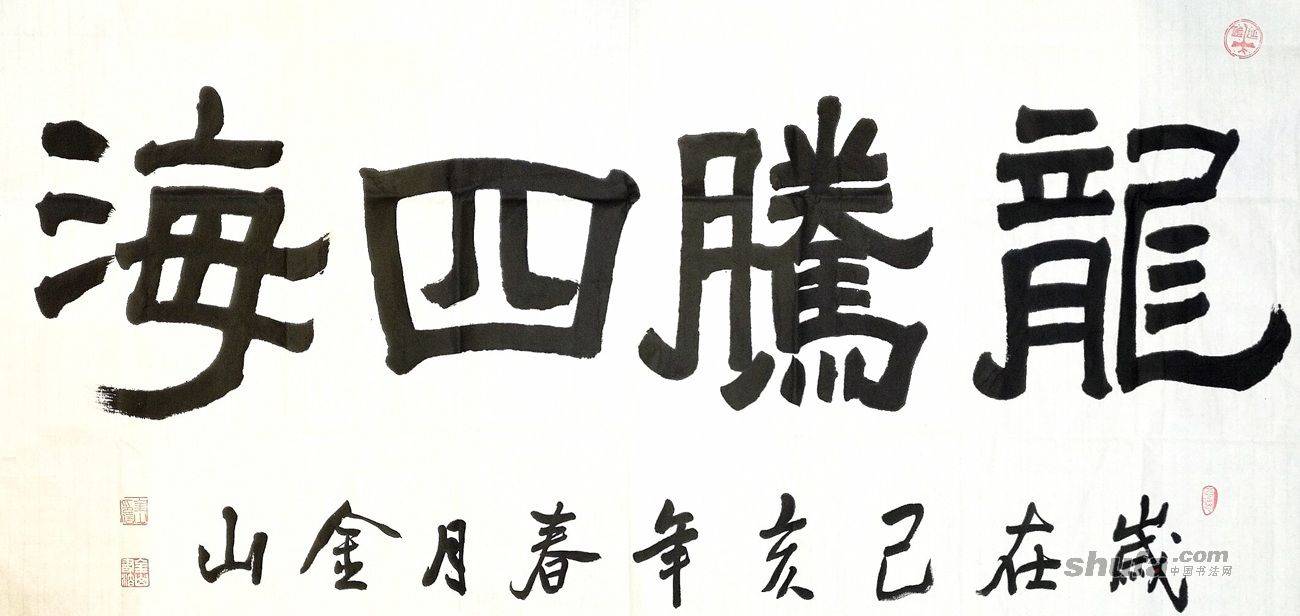 龍騰四海
歲在己亥年春月金山
shufa.com
中国书法网